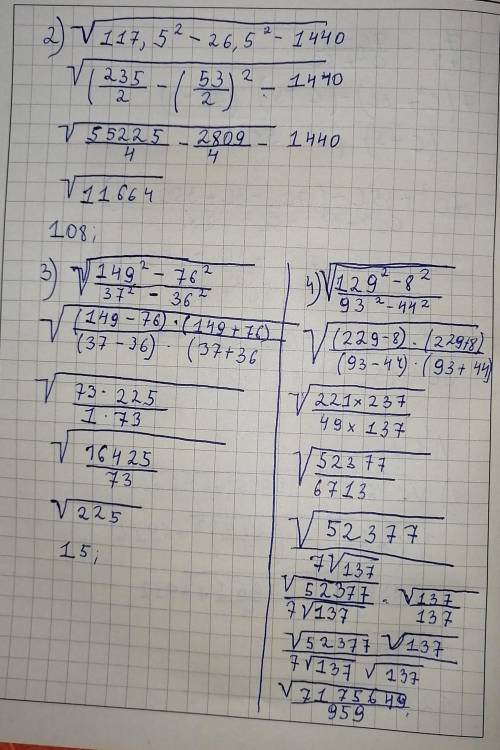 2) √117,5² - 26,5² - 1440
√(235/2 - (53/2)² - 1440
√55225/4 - 2809/4 - 1440
√11664
108;
3) √149² - 76² / 37² - 36²
√(149-76)·(149+76) / (37-36)·(37+36
√73·225 / 1·73
√16425 / 73
√225
15;
4) √129² - 8² / 93² - 44²
√(229-8)·(229+8) / (93-44)·(93+44)
√221×237 / 49×137
√52377 / 6713
√52377 / 7√137
√52377 / 7√137 · √137 / 137
√52377 √137 / 7√137 √137
√7175649 / 959